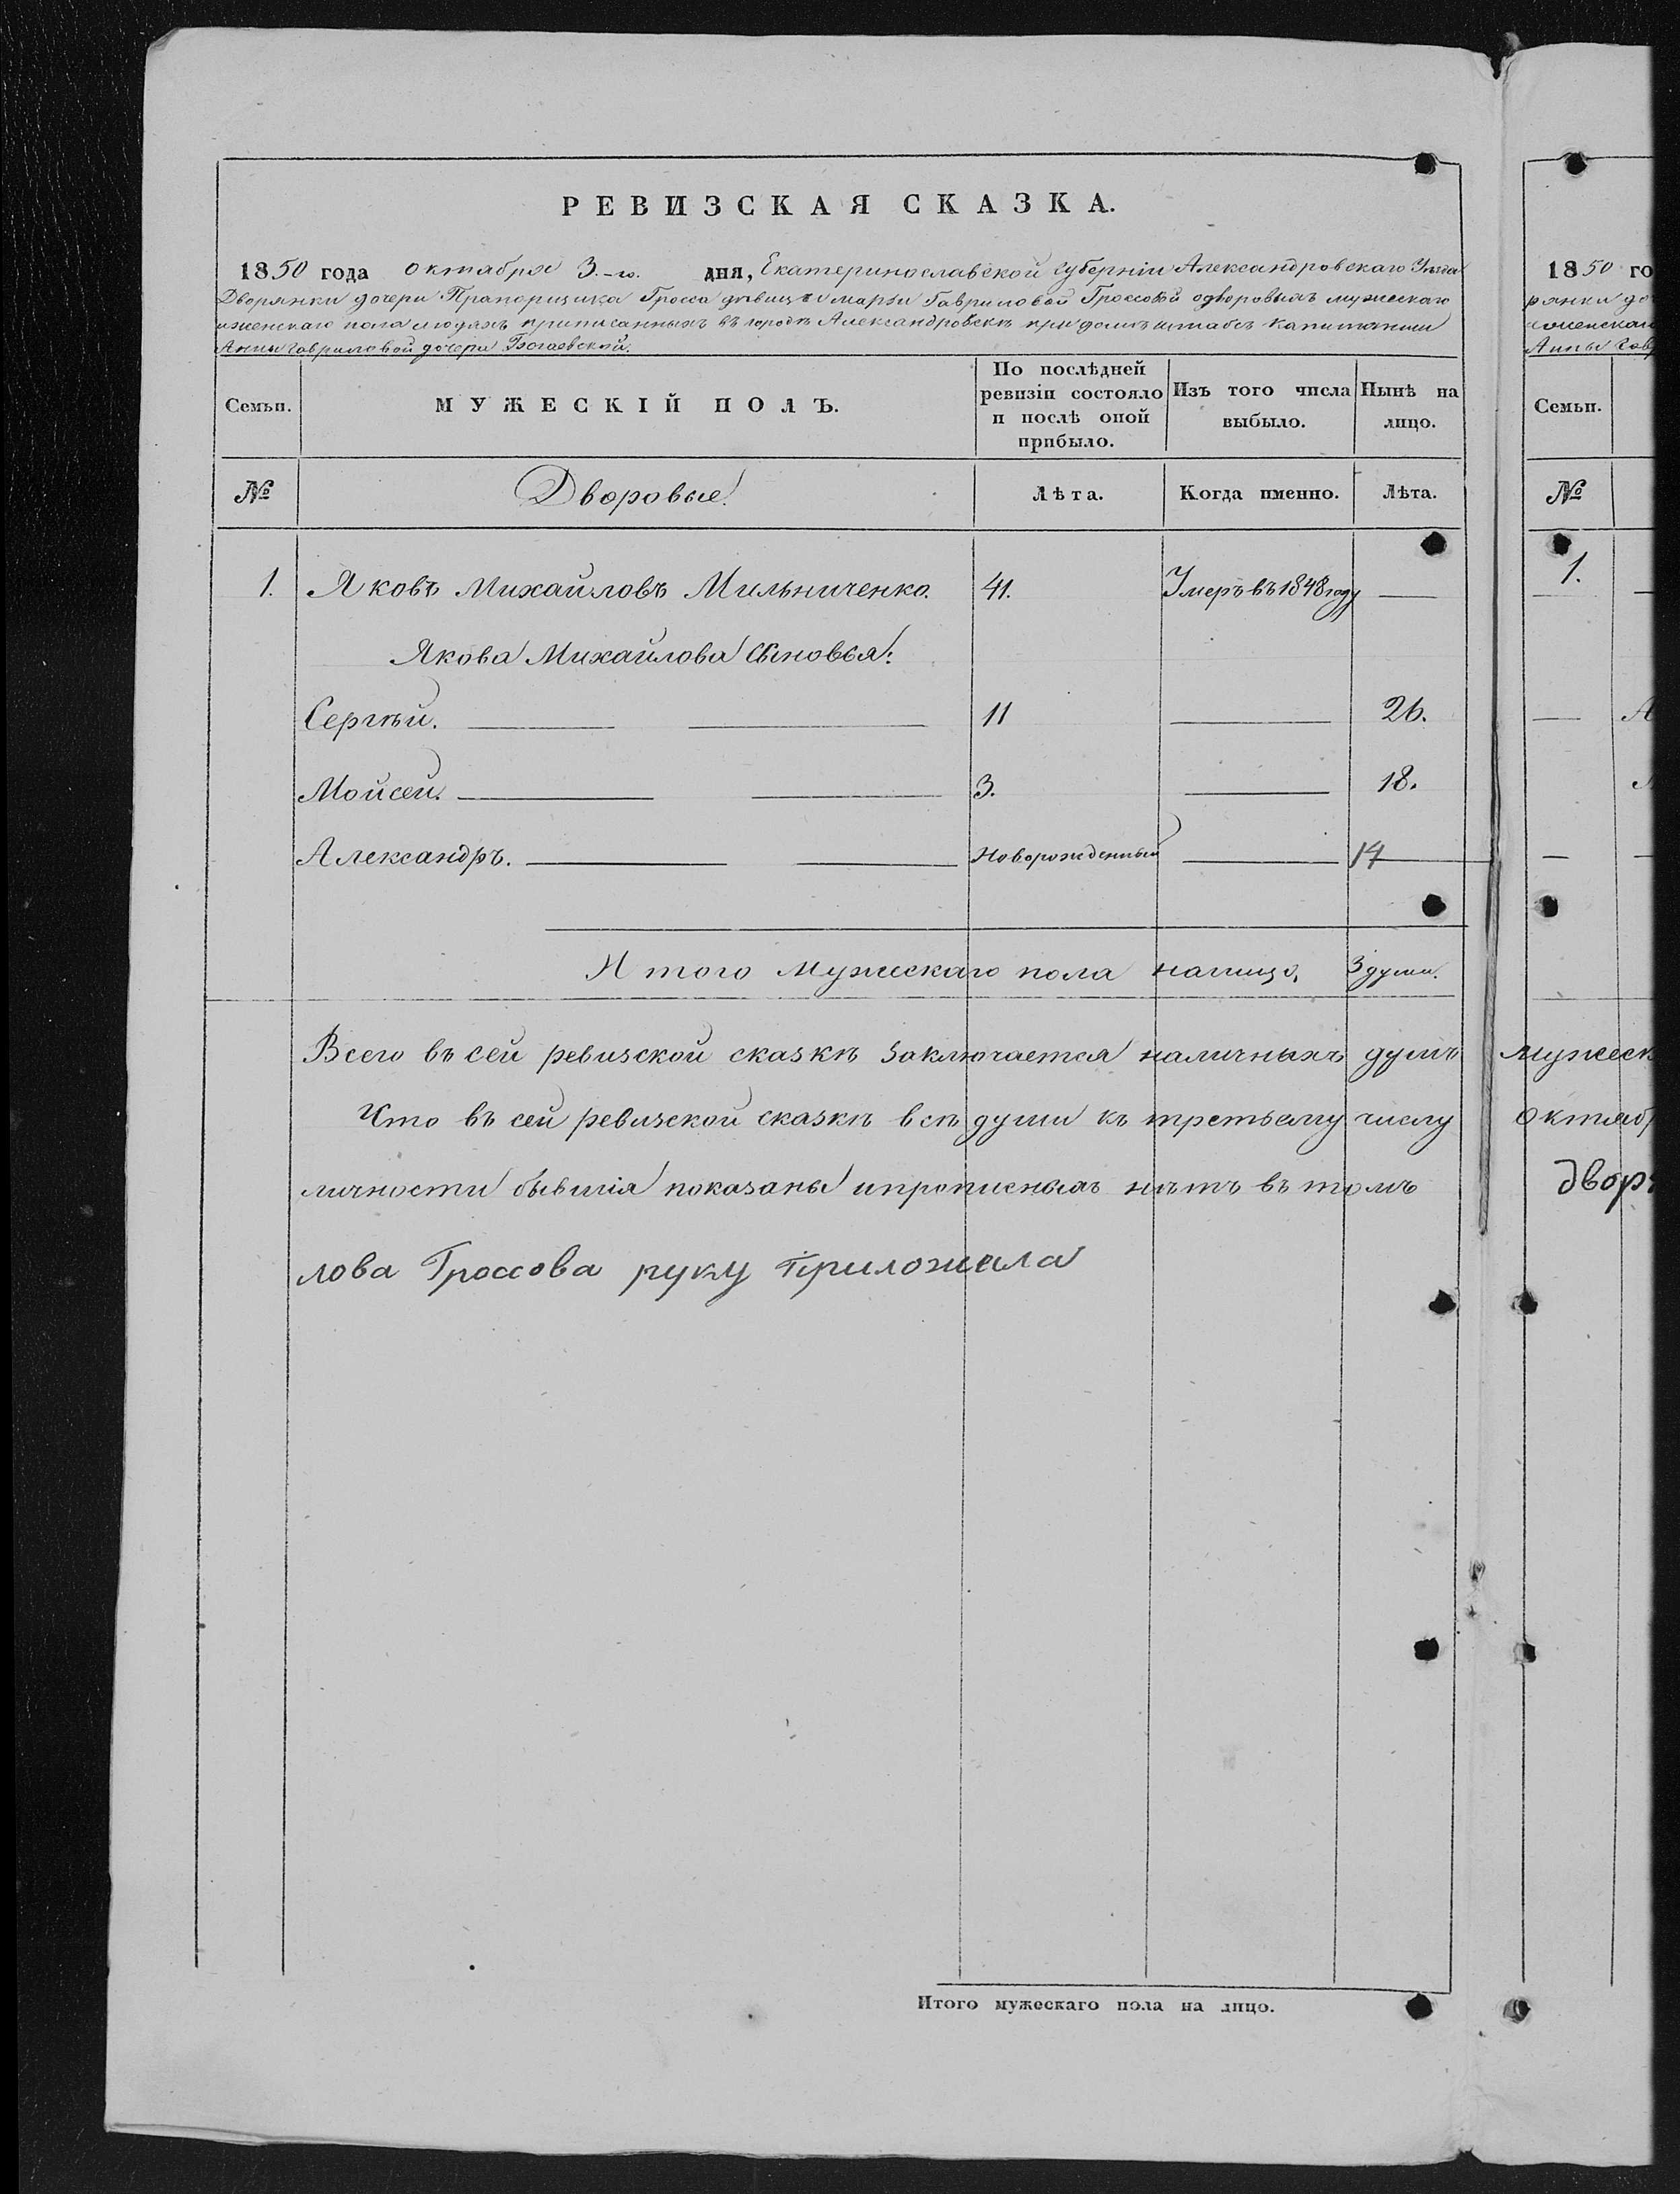 РЕВИЗСКАЯ СКАЗКА.
1850 года октября 3.-го. дня, Екатеринославской губерніи Александровскаго Уезда
Дворянки дочери Прапорщика Гросса девицы Маріи Гавриловой Гроссовой одворовыхъ мужескаго
иженскаго пола людяхъ приписанныхъ въ городѣ Александровскѣ при домѣ штабсъ капитанши
Анны Гавриловой дочери Богаевской.
Семьи. МУЖЕСКІЙ ПОЛЪ. По послѣдней ревизіи состояло и послѣ оной прибыло. Изъ того числа выбыло. Нынѣ на лицо.
№ Дворовые. Лѣта. Когда именно. Лѣта.
1. Яковъ Михайловъ Мильниченко. 41. Умеръ въ 1848 году —
Якова Михайлова Сыновья:
Сергѣй. 11 — 26.
Мойсей. 3. — 18.
Александръ. Новорожденный — 14
Итого мужескаго пола налицо, 3 души.
Всего въ сей ревизской сказкѣ заключается наличныхъ душъ
Что въ сей ревизской сказкѣ всѣ души къ третьему числу
личности бывшія показаны ипрописныхъ нѣтъ въ томъ
лова Гроссова руку приложила
Итого мужескаго пола на лицо.
1850 го
рянки до
иженскаго
Анны Гавр
Семьи.
№
1.
мужеск
Октябр
Дворя